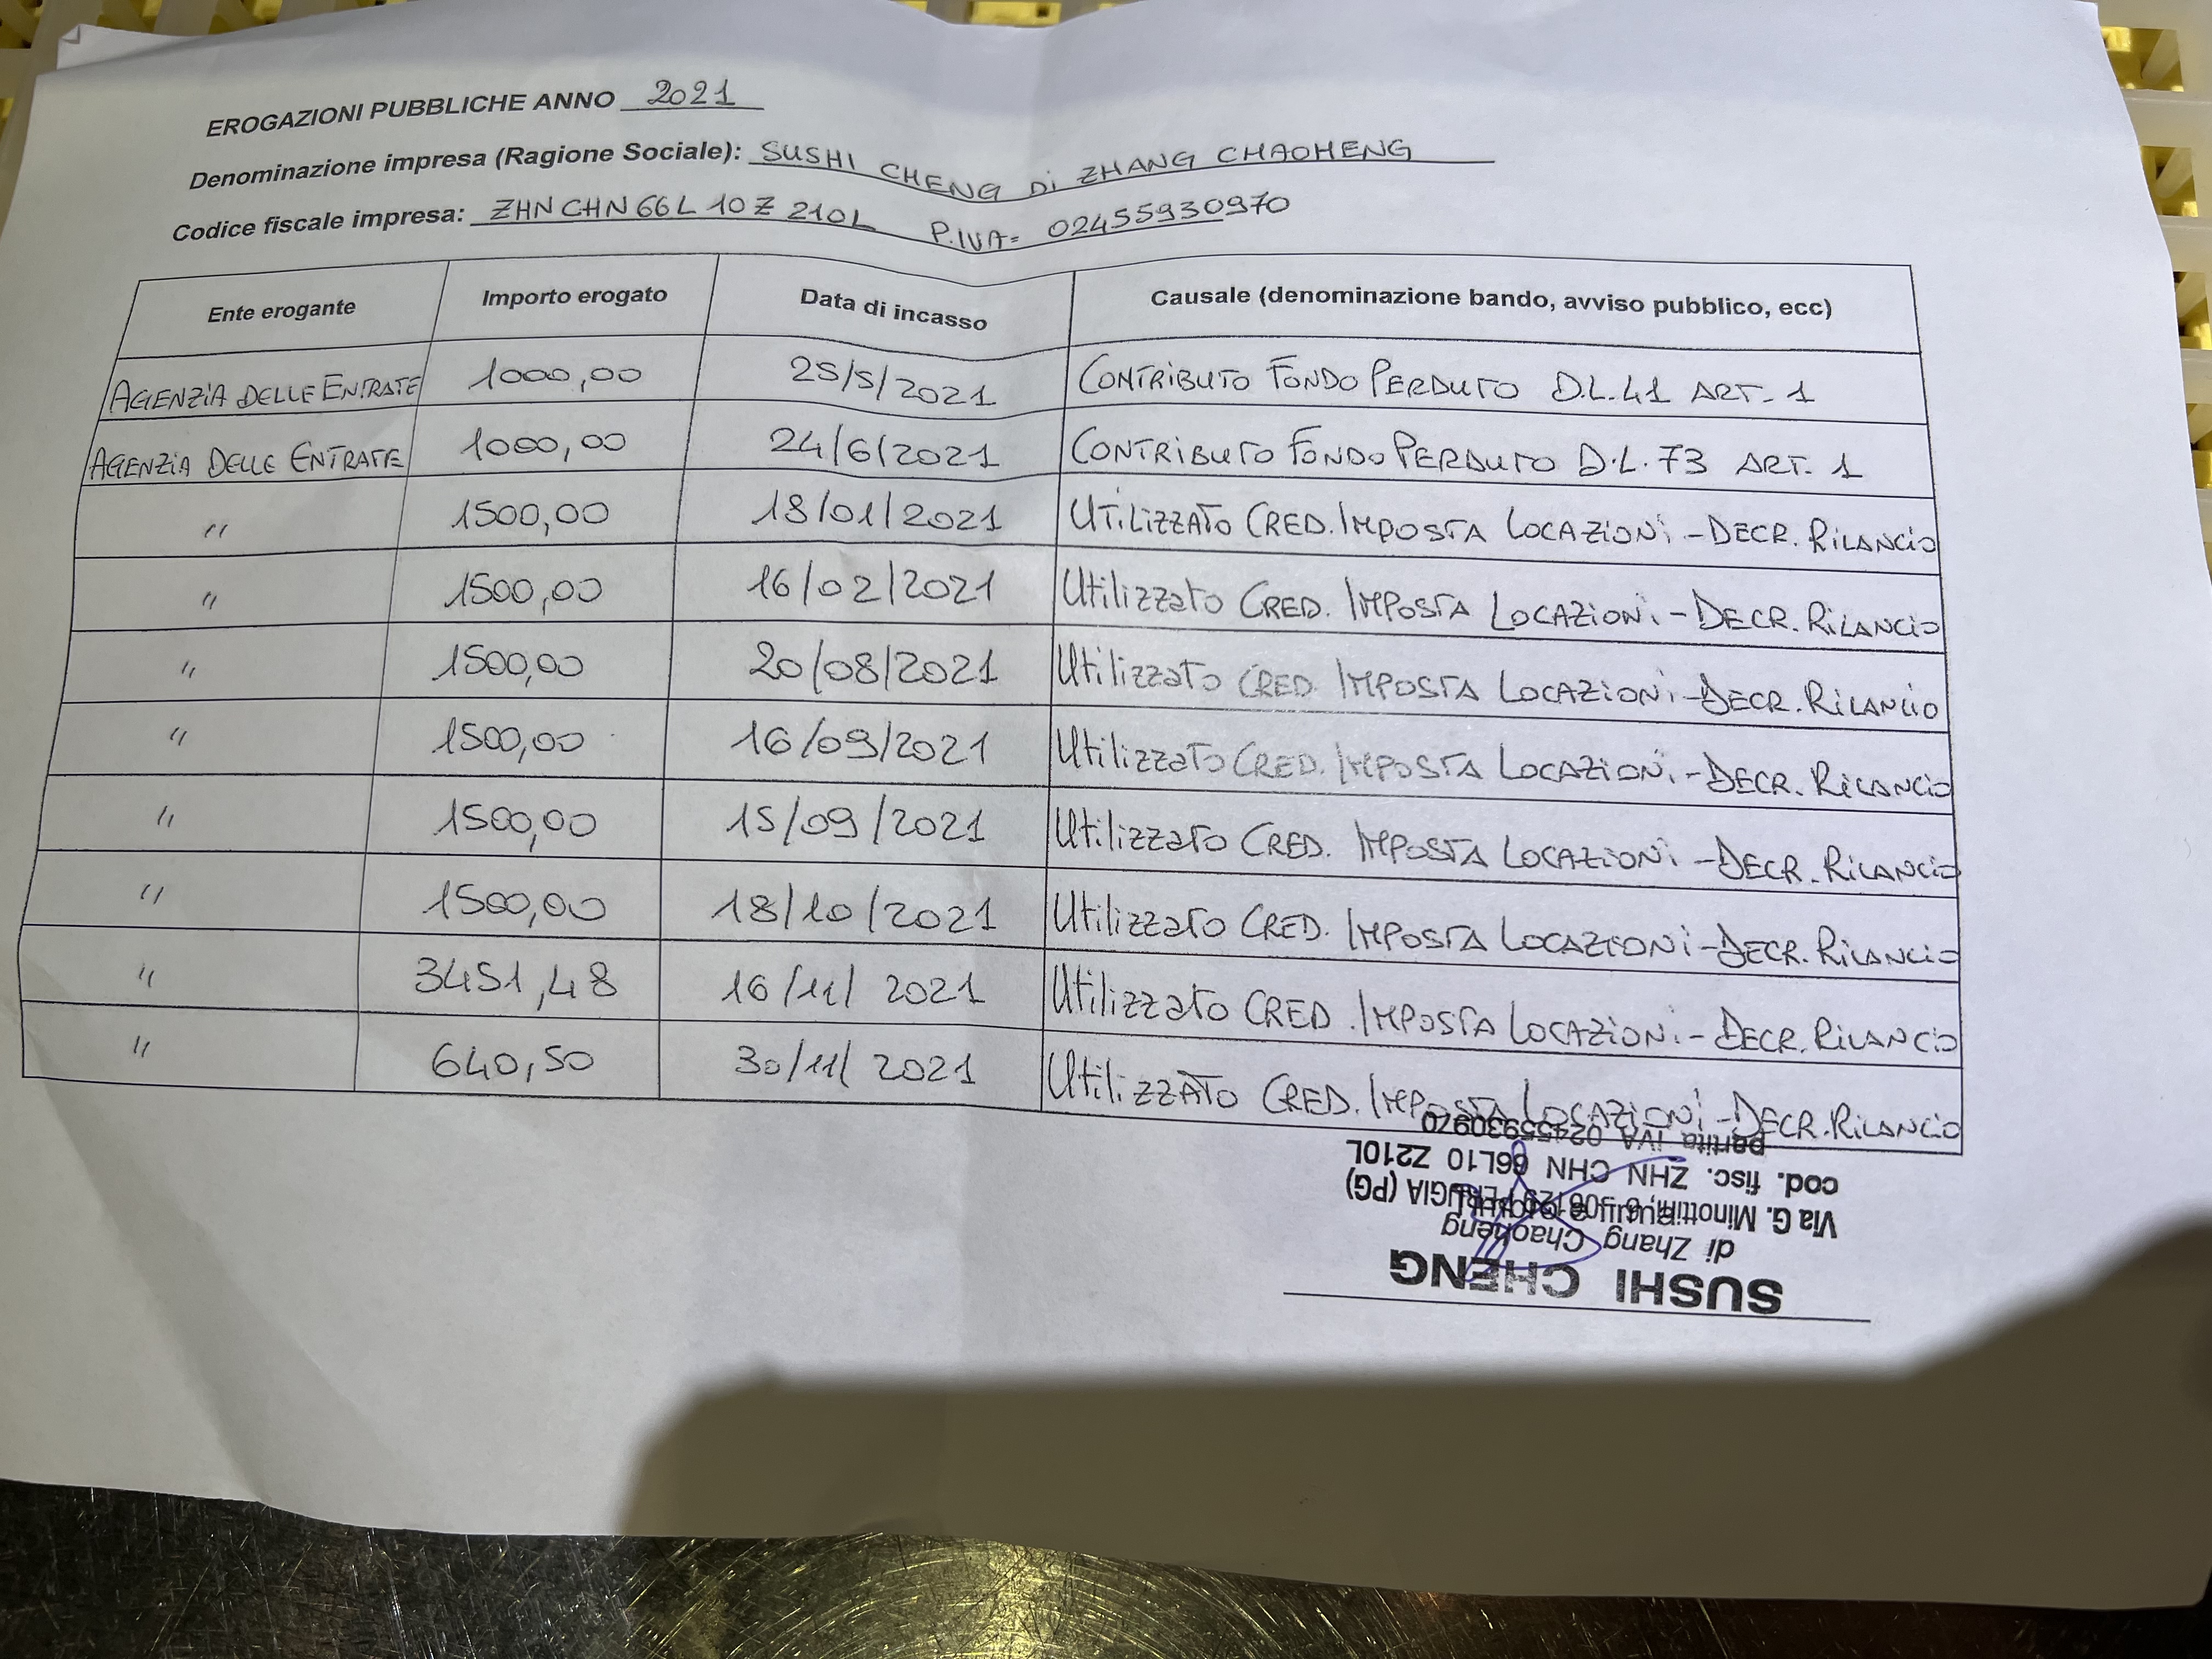 EROGAZIONI PUBBLICHE ANNO 2021
Denominazione impresa (Ragione Sociale): SUSHI CHENG Di ZHANG CHAOHENG
Codice fiscale impresa: ZHNCHN66L10Z210L P.IVA= 02455930970
Ente erogante Importo erogato Data di incasso Causale (denominazione bando, avviso pubblico, ecc)
AGENZIA DELLE ENTRATE 1000,00 25/5/2021 CONTRIBUTO FONDO PERDUTO D.L.41 ART. 1
AGENZIA DELLE ENTRATE 1000,00 24/6/2021 CONTRIBUTO FONDO PERDUTO D.L.73 ART. 1
" 1500,00 18/01/2021 UTILIZZATO CRED. IMPOSTA LOCAZIONI - DECR. RILANCIO
" 1500,00 16/02/2021 Utilizzato CRED. IMPOSTA LOCAZIONI - DECR. RILANCIO
" 1500,00 20/08/2021 Utilizzato CRED. IMPOSTA LOCAZIONI - DECR. RILANCIO
" 1500,00 16/09/2021 Utilizzato CRED. IMPOSTA LOCAZIONI - DECR. RILANCIO
" 1500,00 15/09/2021 Utilizzato CRED. IMPOSTA LOCAZIONI - DECR. RILANCIO
" 1500,00 18/10/2021 Utilizzato CRED. IMPOSTA LOCAZIONI - DECR. RILANCIO
" 3451,48 16/11/2021 Utilizzato CRED. IMPOSTA LOCAZIONI - DECR. RILANCIO
" 640,50 30/11/2021 UtiliZZATO CRED. IMPOSTA LOCAZIONI - DECR. RILANCIO
SUSHI CHENG
di Zhang Chaoheng
Via G. Minottini, 6 - 06129 PERUGIA (PG)
cod. fisc. ZHN CHN 66L10 Z210L
partita IVA 02455930970